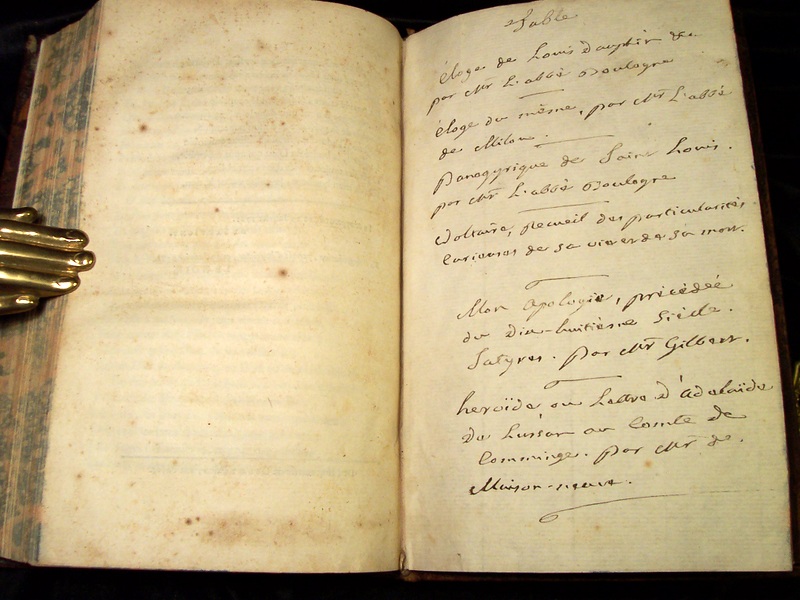 Table
éloge de Louis Dauphin &c.
par Mr L'abbé Boulogne
éloge du même, par Mr L'abbé
de Milon.
Panegyrique de Saint Louis.
par Mr L'abbé Boulogne
Voltaire, Recueil des particularités
Curieuses de sa vie et de sa mort.
Mon Apologie, précédée
du Dix-huitième Siècle.
Satyres. par Mr Gilbert.
heroïde ou Lettre d'Adelaïde
De Lussan au Comte de
Comminge. par Mr de
Maison-neuve.